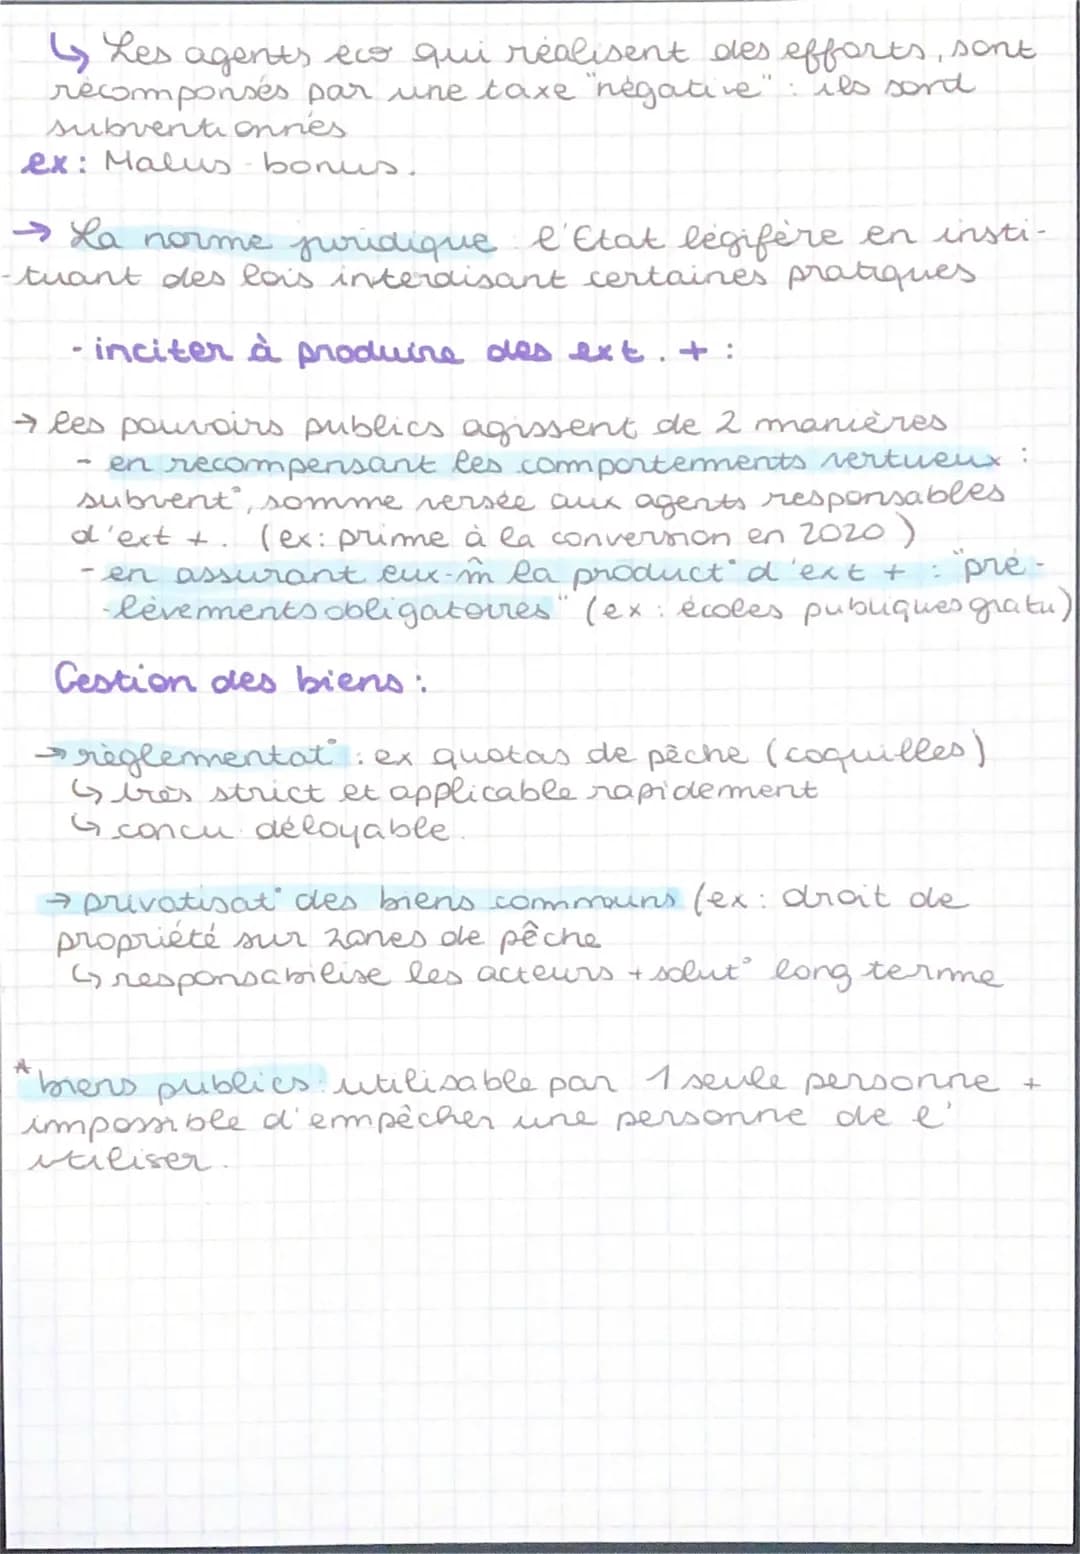 ↳ Les agents eco qui réalisent des efforts, sont
récomponsés par une taxe "négative" : ils sond
subventionnés
ex : Malus - bonus.
→ La norme juridique l'Etat légifère en insti-
-tuant des lois interdisant certaines pratiques
- inciter à produire des ext. + :
→ les pouvoirs publics agissent de 2 manières
- en recompensant les comportements vertueux :
subvent°, somme versée aux agents responsables
d'ext +. (ex : prime à la conversion en 2020)
- en assurant eux-m̂ la product° d'ext + : "pré-
-lèvements obligatoires" (ex : écoles publiques gratu)
Gestion des biens :
→ règlementat° : ex quotas de pêche (coquilles)
↳ très strict et applicable rapidement
↳ concu déloyable.
→ privatisat° des biens communs (ex : droit de
propriété sur zones de pêche
↳ responsabilise les acteurs + solut° long terme
* biens publics : utilisable par 1 seule personne +
impossible d'empêcher une personne de l'
utiliser.